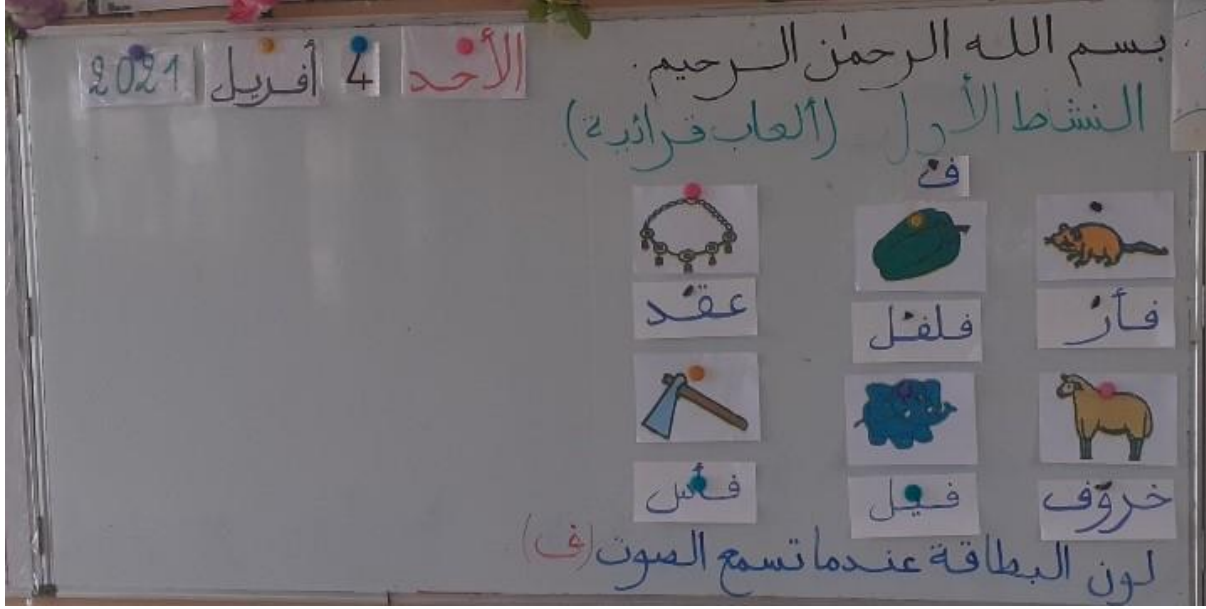 بسم الله الرحمٰن الرحيم.
الأحد 4 أفريل 2021
النشاط الأول (ألعاب قرائية)
ف
فأر فلفل عقد
خروف فيل فأس
لون البطاقة عندما تسمع الصوت (ف)